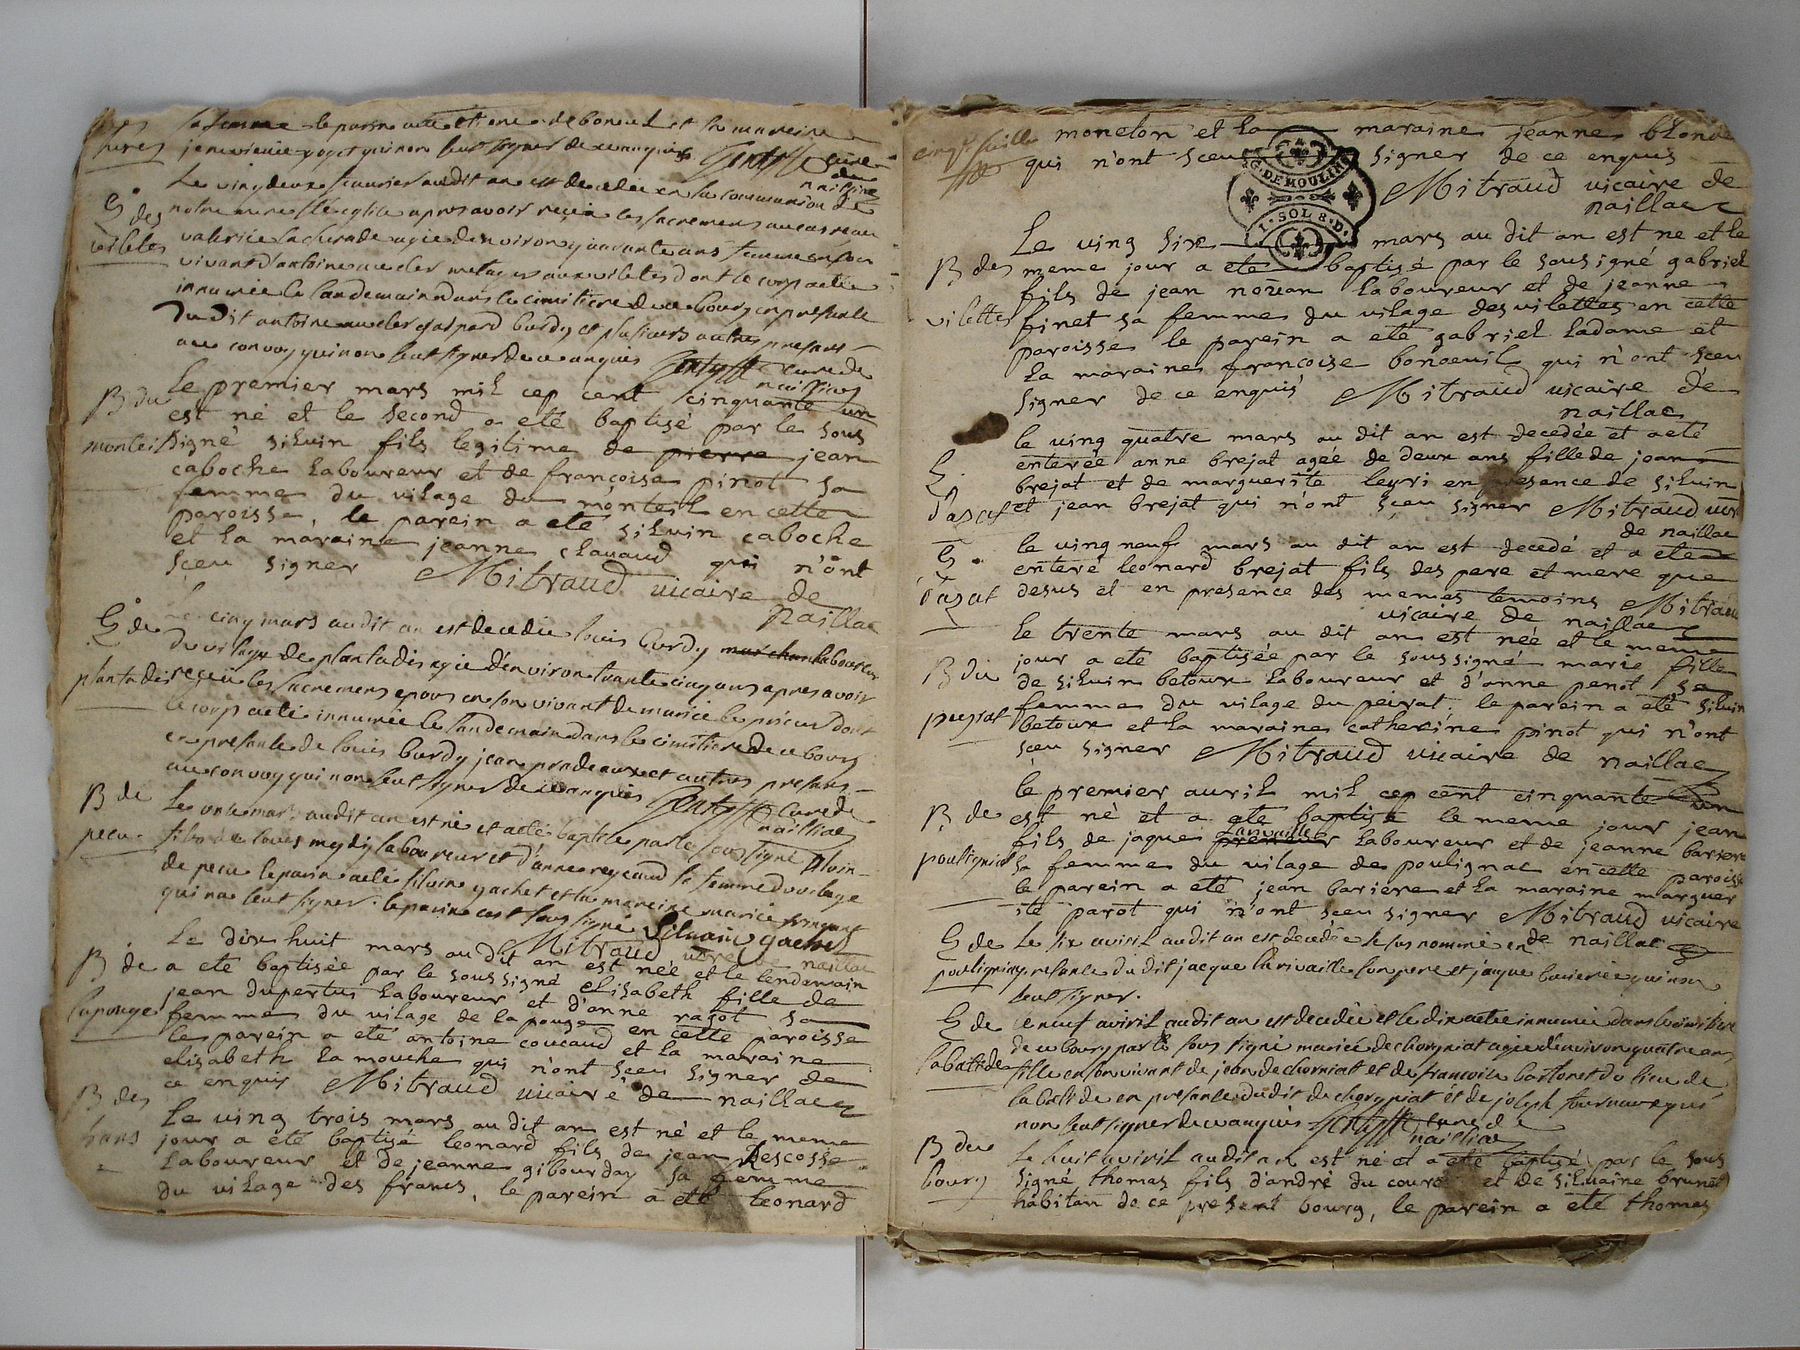 sa femme le parin a eté etiene de boneuil et la mareine
qui non seut signer de ce anquis
Le vingdeux feuurier audit an est decedée en la communion de
notre mere s.te eglise apres avoir reçeu les sacremens
agée d'environ quarante ans femme en son
vivant d'antoine mercier metayer aux viletes dont le corp a eté
innumée le landemain dans le cimitiere de ce bourg en presance
Du Dit antoine mercier gaspard burdy et plusieurs autres presans
au convoy qui non seut signer de ce anquis curé de
naillac
E des
viletes
B du
monteil
Le premier mars mil cep cent cinquante un
est né et le second a eté baptisé par le sous
signé siluin fils legitime de pierre jean
caboche laboureur et de françoise pinot sa
femme du vilage du monteil en cette
paroisse, le parein a eté siluin caboche
et la maraine jeanne chavaud qui n'ont
sceu signer Mitraud vicaire de
naillac
E de
plantadis
cinq mars audit an est decedée louis burdy marchan laboureur
du vilage de plantadis agée d'environ trante cinq ans apres avoir
reçeu les sacremens epous en son vivant de marie dont
le corp a eté innumée le landemain dans le cimitiere de ce bourg
en presante de louis burdy jean pradeaux et autres presans
au convoy qui non seut signer de ce anquis curé de
naillac
B de
pecu
Le onse mars audit an est né et a eté baptisé par le sous signé siluin
fils de louis meydy laboureur et d'anne reycaud sa femme du vilage
de pecu le parin a eté siluin gachet et la mareine marie
qui na seut signer le parin cest sous signé Siluain gachet
Mitraud vicaire de naillac
B de
lapouge
Le dix huit mars au dit an est née et le lendemain
a eté baptisée par le soussigné elisabeth fille de
jean dupertui laboureur et d'anne ragot sa
femme du vilage de la pouge en cette paroisse
le parein a eté antoine coucaud et la maraine
elisabeth la mouche qui n'ont sceu signer de
ce enquis Mitraud vicaire de naillac
B des
frans
Le ving trois mars au dit an est né et le meme
jour a eté baptisé leonard fils de jean descosse
laboureur et de jeanne gibourday sa femme
du vilage des francs, le parein a eté leonard
moneton et la maraine jeanne blonde
qui n'ont sceu signer de ce enquis
Mitraud vicaire de
naillac
G. DE MOULINS
1. SOL 8. D.
B des
vilettes
Le ving six mars au dit an est ne et le
meme jour a eté baptisé par le sousigné gabriel
fils de jean noüan laboureur et de jeanne
finet sa femme du vilage des vilettes en cette
paroisse le parein a eté gabriel ladame et
la maraine françoise bonoeuil qui n'ont sceu
signer de ce enquis Mitraud vicaire de
naillac
E.
d'azat
le ving quatre mars au dit an est decedée et a eté
enterée anne brejat agée de deux ans fille de jean
brejat et de marguerite leyri en presance de siluin
et jean brejat qui n'ont sceu signer Mitraud vicr
de naillac
E.
d'azat
le ving neuf mars au dit an est decedé et a eté
enteré leonard brejat fils des pere et mere que
desus et en presance des memes temoins Mitraud
vicaire de naillac
B du
peyrat
le trente mars au dit an est née et le meme
jour a eté baptisée par le soussigné marie fille
de siluin betoux laboureur et d'anne penot sa
femme du vilage du peirat, le parein a eté siluin
betoux et la maraine catherine pinot qui n'ont
sceu signer Mitraud vicaire de naillac
B de
poulignat
le premier auril mil cep cent cinquante un
est né et a eté baptisé le meme jour jean
fils de jaque premier laboureur et de jeanne bariere
sa femme du vilage de poulignac en cette paroisse
le parein a eté jean bariere et la maraine marguer
ite parot qui n'ont sceu signer Mitraud vicaire
de naillac
E de
poulignac
Le six aviril audit an est decedée le sus nommé en
presante du dit jacque larivaille son pere et jaque bariere qui non
seut signer.
E de
la bastide
Le neuf aviril audit an est decedée et le dix a eté innumée dans le cimitiere
de ce bourg par le sous signé marie de chorgniat agée d'environ quatre ans
fille en son vivant de jean de chorniat et de françoise bartonet du lieu de
la bastide en presante du dit de chorgniat et de joseph fournoux qui
non seut signer de ce anquis curé de
naillac
B du
bourg
Le huit aviril audit an est né et a eté baptisé par le sous
signé thomas fils d'andré du couret et de siluaine brunet
habitan de ce present bourg, le parein a eté thomas